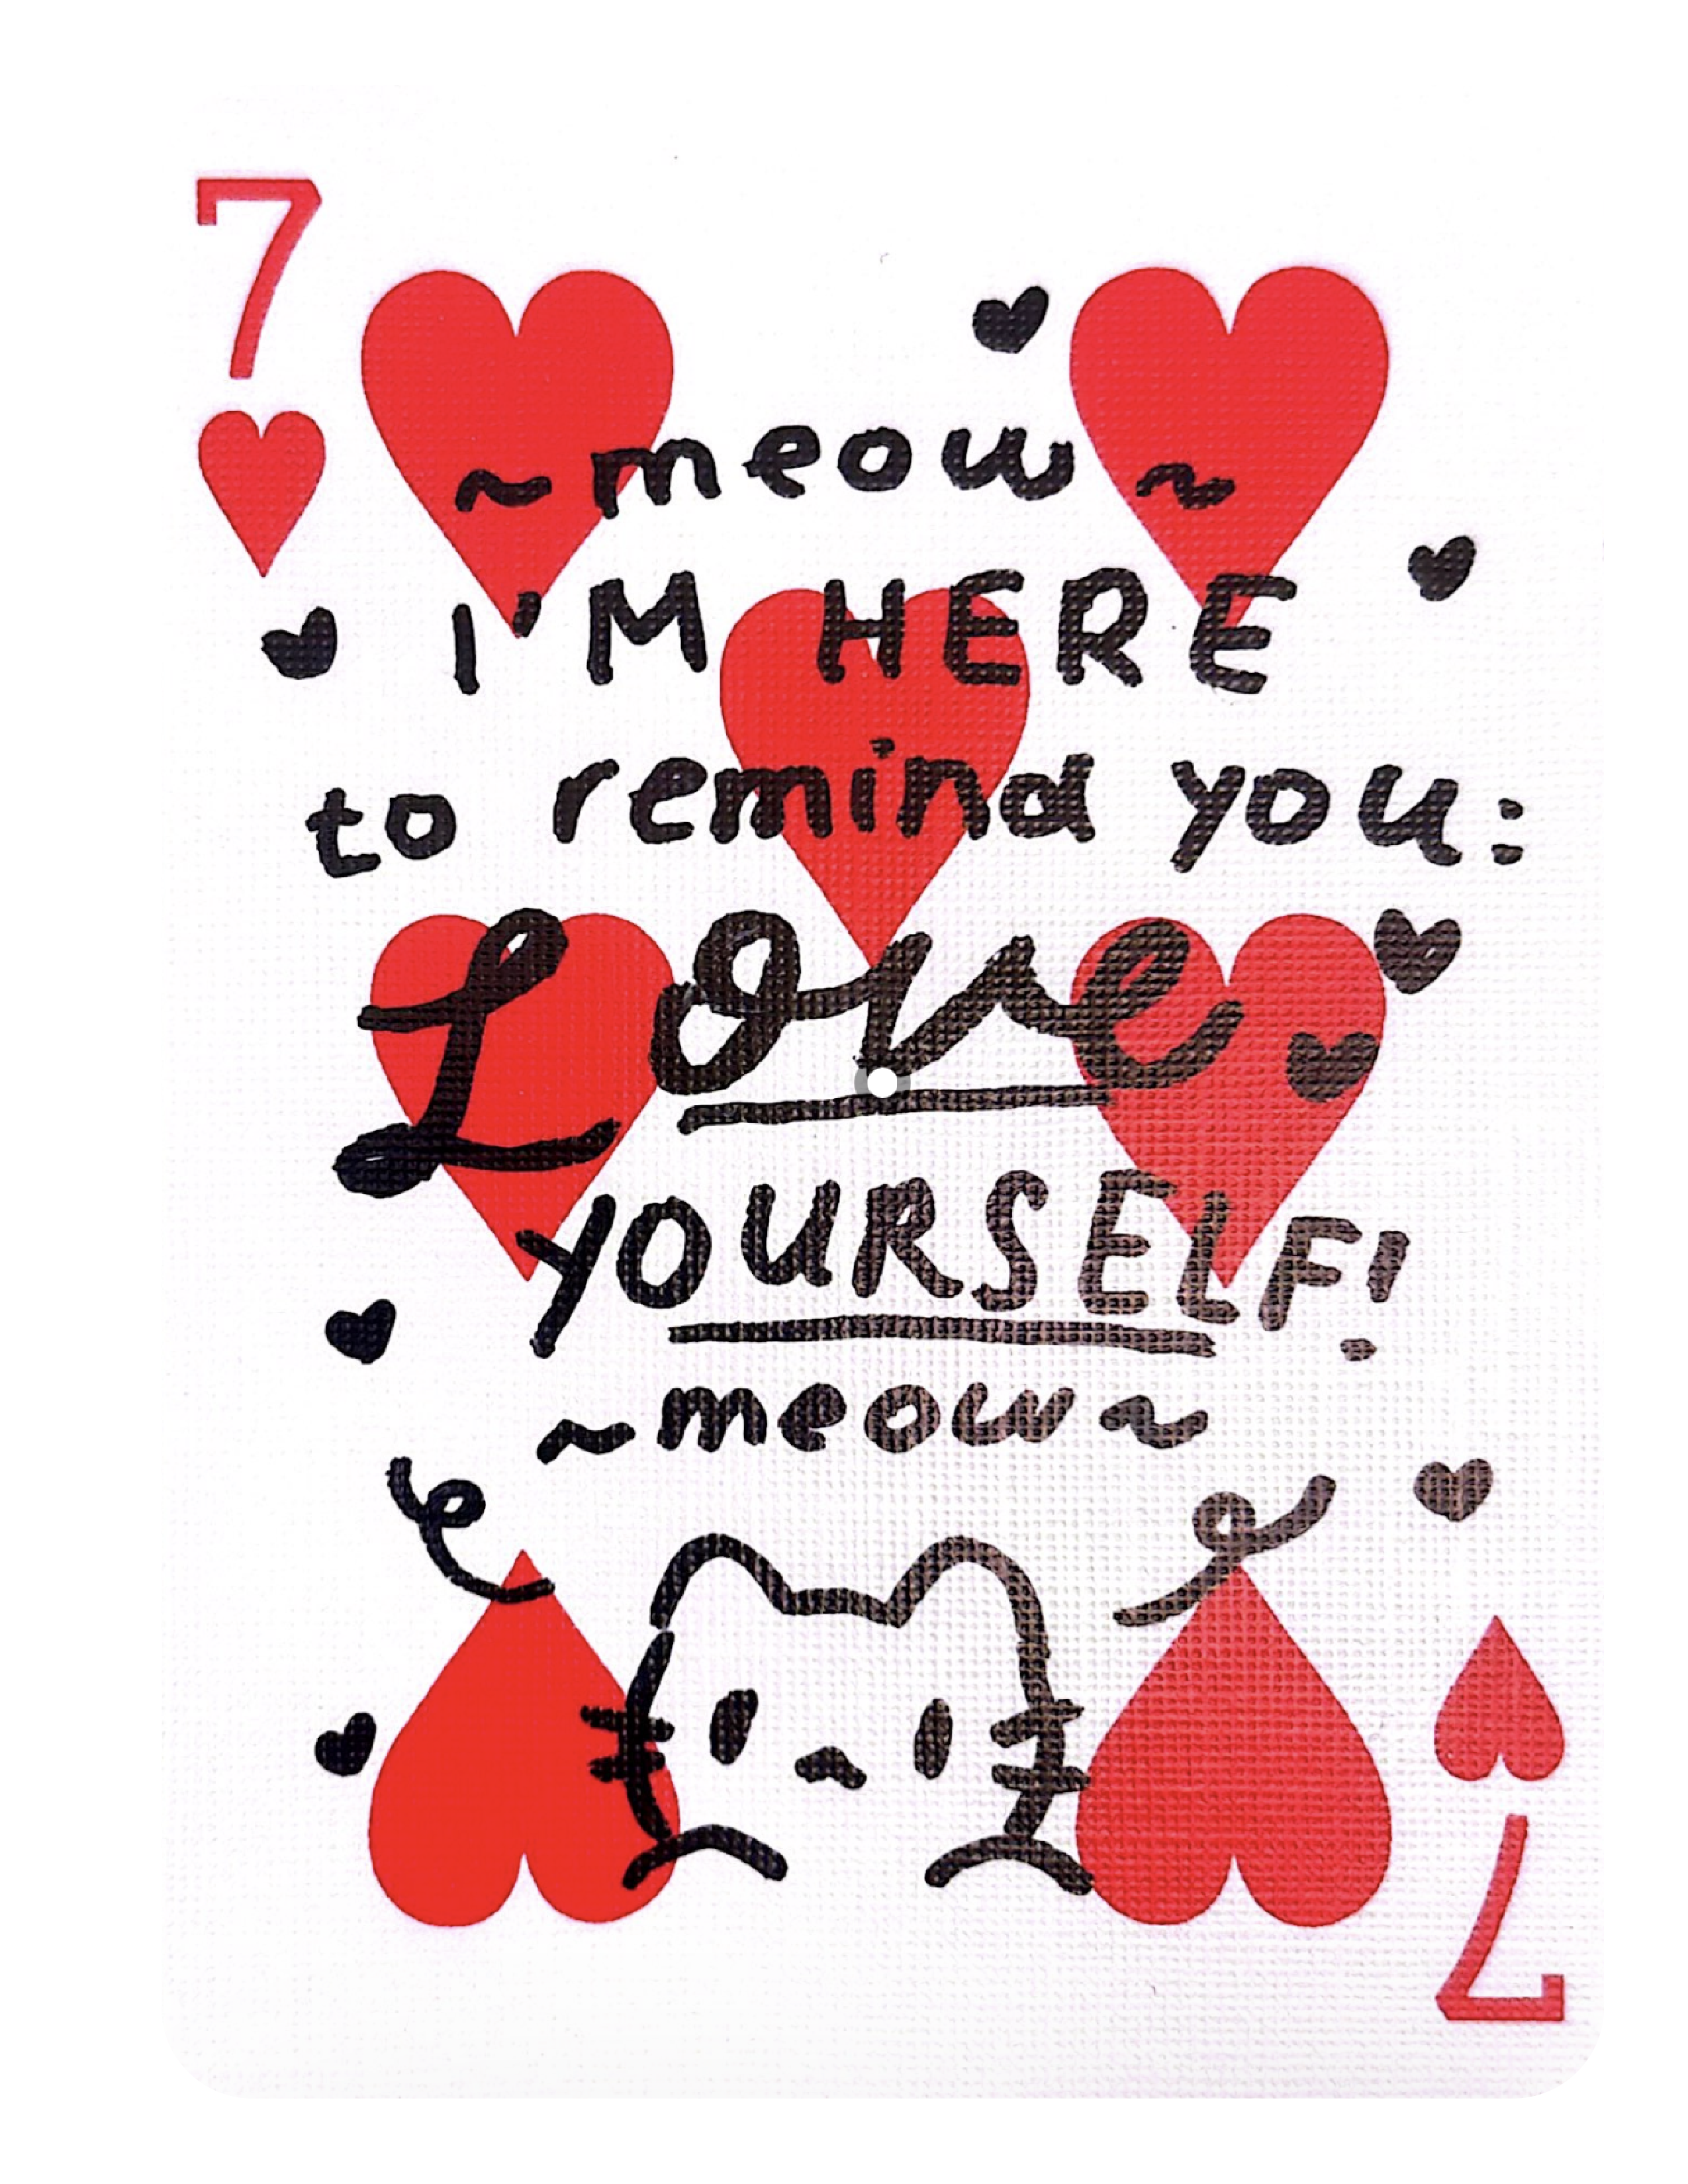 7
~meow~
I'M HERE
to remind you:
Love
YOURSELF!
~meow~
7